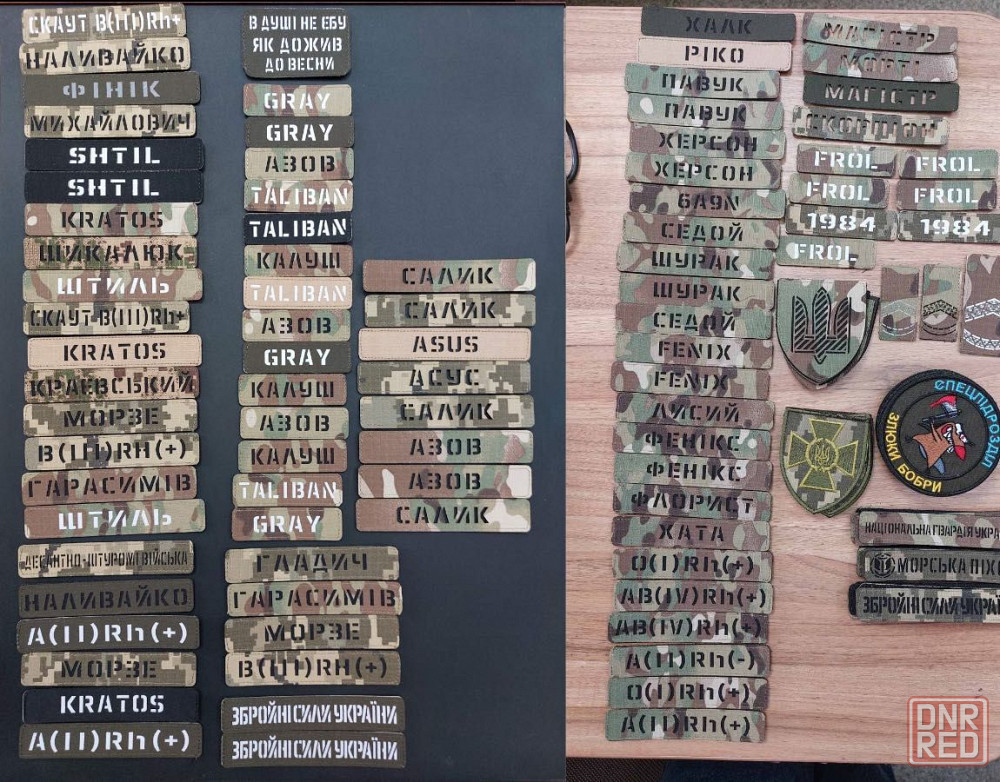 СКАУТ В(III)Rh+
НАЛИВАЙКО
ФІНІК
МИХАЙЛОВИЧ
SHTIL
SHTIL
KRATOS
ШИКАЛЮК
ШТИЛЬ
СКАУТ В(III)Rh+
KRATOS
КРАЕВСЬКИЙ
МОРЗЕ
В(III)RH(+)
ГАРАСИМІВ
ШТИЛЬ
ДЕСАНТНО-ШТУРМОВІ ВІЙСЬКА
НАЛИВАЙКО
A(II)Rh(+)
МОРЗЕ
KRATOS
A(II)Rh(+)
В ДУШІ НЕ ЕБУ
ЯК ДОЖИВ
ДО ВЕСНИ
GRAY
GRAY
АЗОВ
TALIBAN
TALIBAN
КАЛУШ
TALIBAN
АЗОВ
GRAY
КАЛУШ
АЗОВ
КАЛУШ
TALIBAN
GRAY
ГЛАДИЧ
ГАРАСИМІВ
МОРЗЕ
В(III)RH(+)
ЗБРОЙНІ СИЛИ УКРАЇНИ
ЗБРОЙНІ СИЛИ УКРАЇНИ
САЛИК
САЛИК
ASUS
АСУС
САЛИК
АЗОВ
АЗОВ
САЛИК
ХАЛК
РІКО
ПАВУК
ПАВУК
ХЕРСОН
ХЕРСОН
БАЯN
СЕДОЙ
ШУРАК
ШУРАК
СЕДОЙ
FENIX
FENIX
ЛИСИЙ
ФЕНІКС
ФЕНІКС
ФЛОРИСТ
ХАТА
O(I)Rh(+)
AB(IV)Rh(+)
AB(IV)Rh(+)
A(II)Rh(-)
O(I)Rh(+)
A(II)Rh(+)
МАГІСТР
МОРТІ
МАГІСТР
СКОРПІОН
FROL
FROL
FROL
FROL
1984
1984
FROL
СПЕЦПІДРОЗДІЛ
ЗЛЮКИ БОБРИ
НАЦІОНАЛЬНА ГВАРДІЯ УКРА
МОРСЬКА ПІХО
ЗБРОЙНІ СИЛИ УКРАЇ
DNR
RED